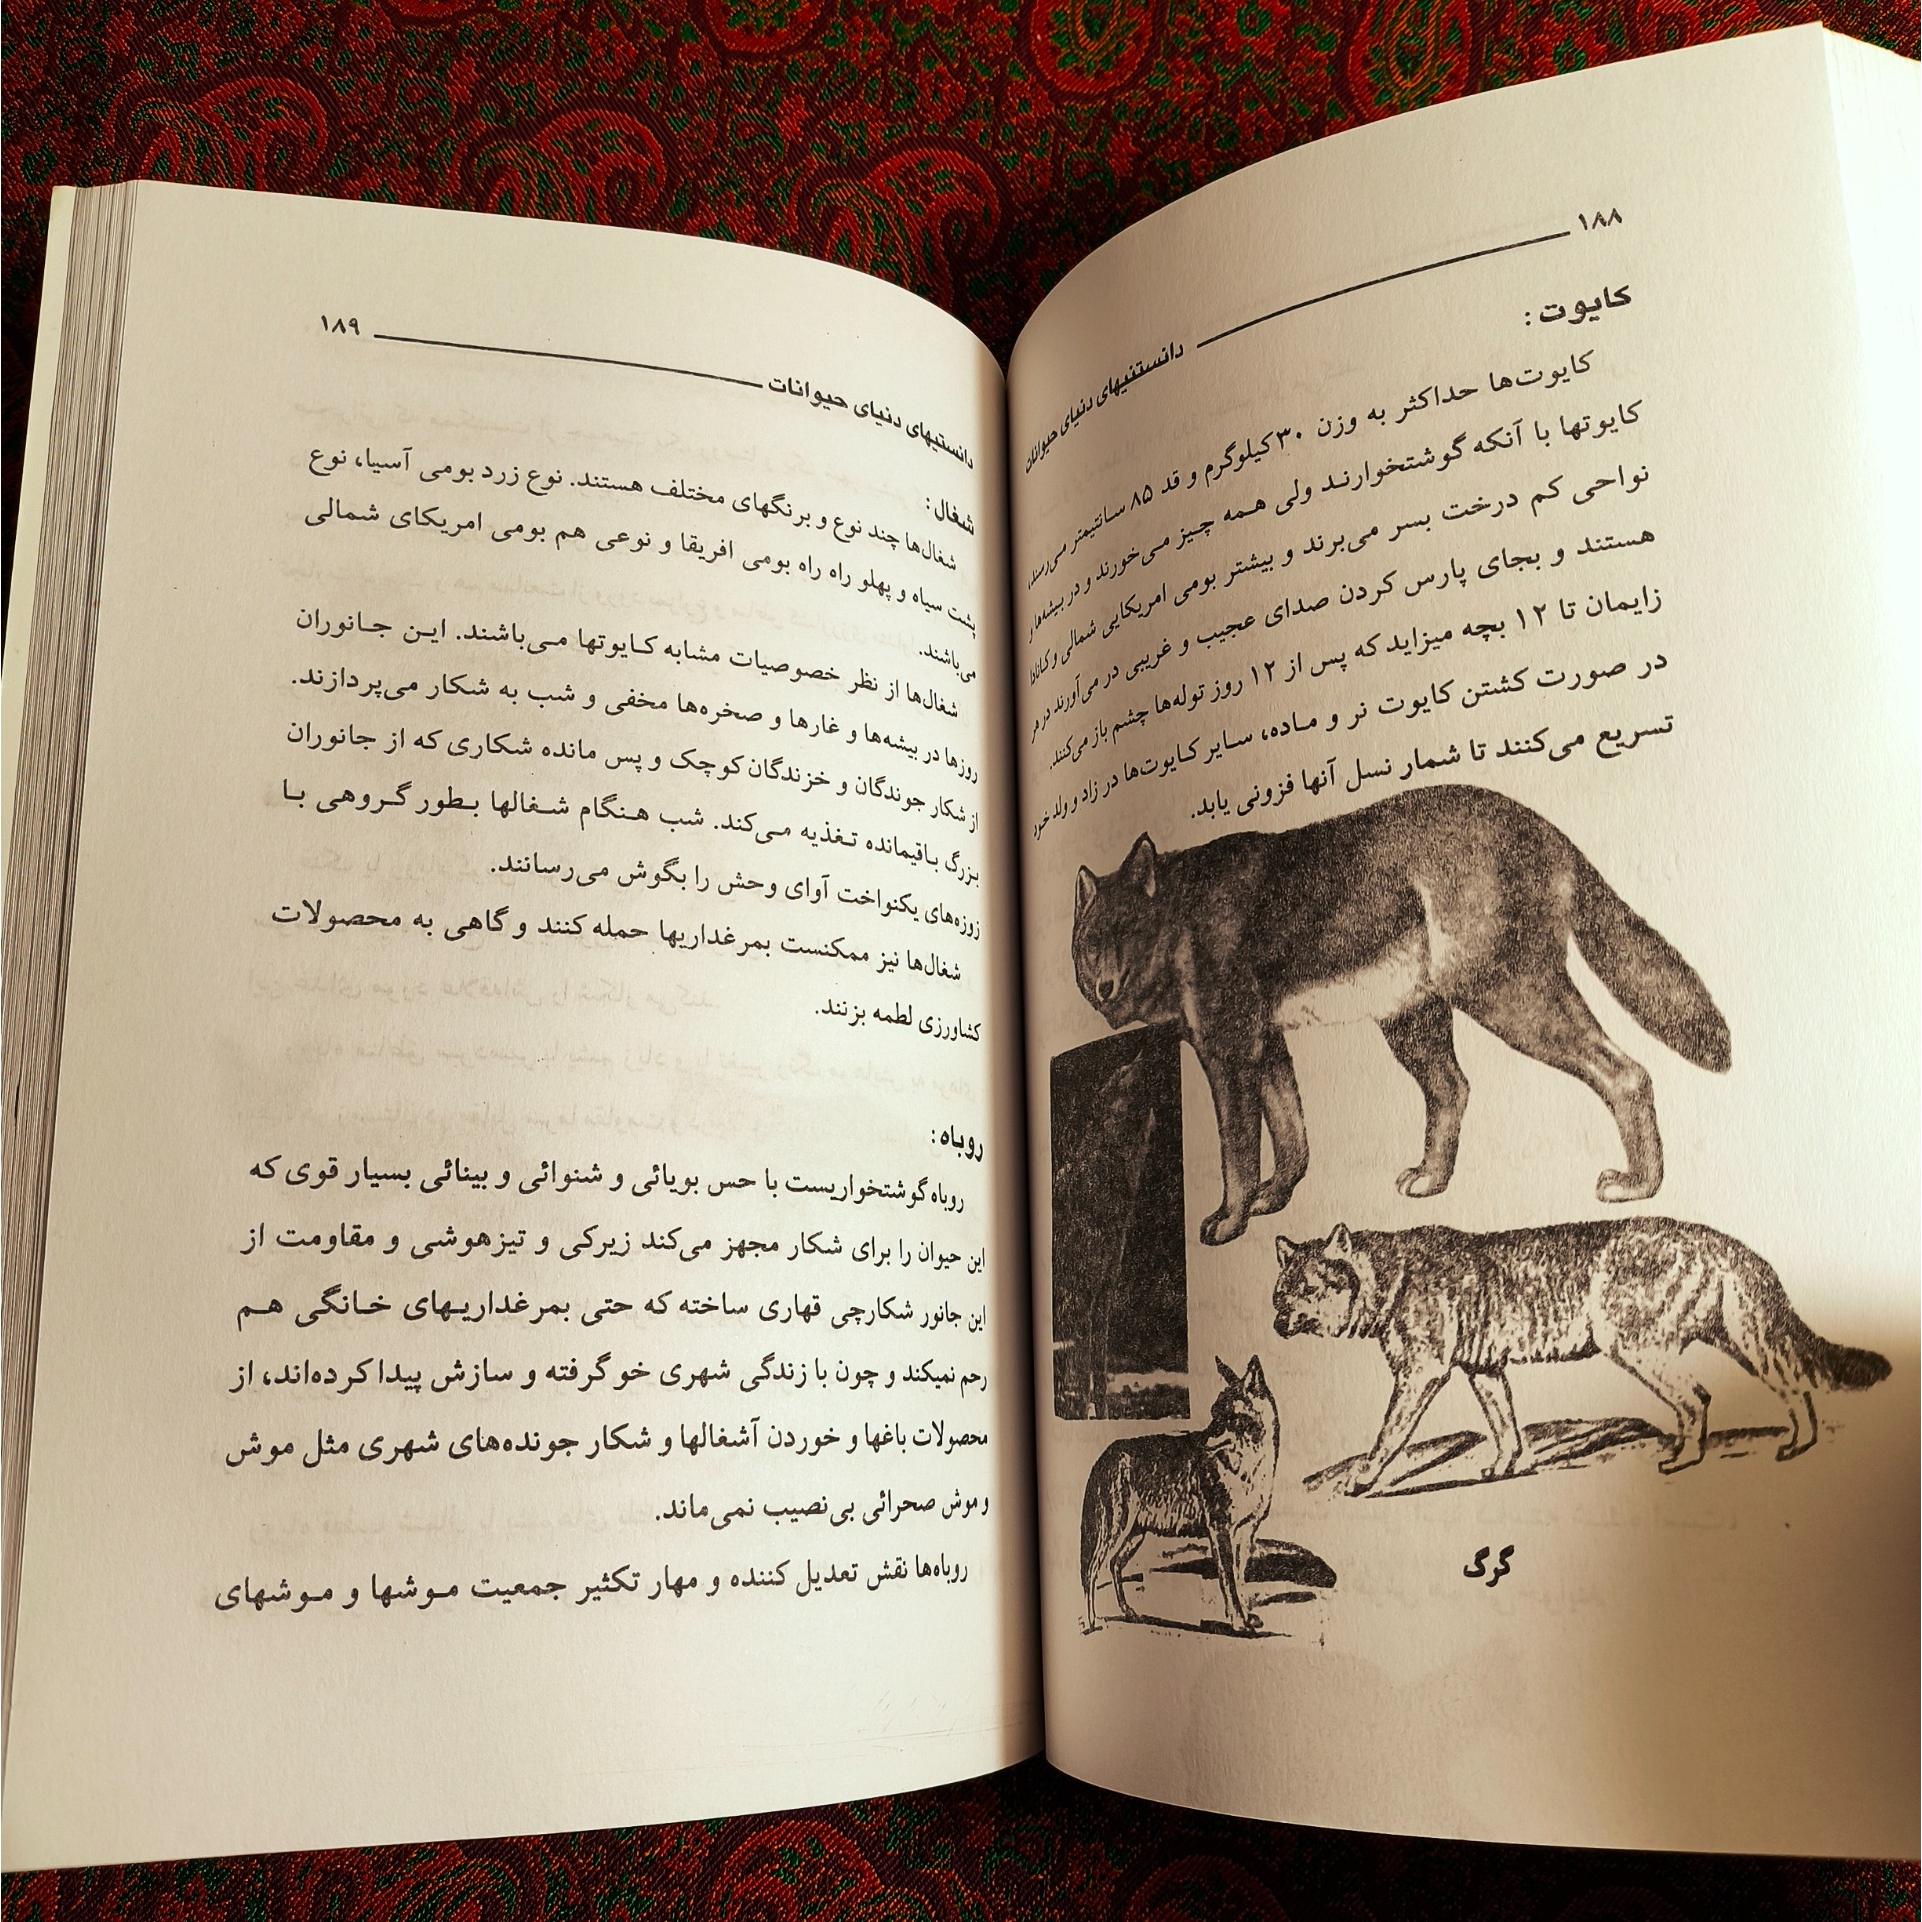 ۱۸۸
دانستنیهای دنیای حیوانات
کایوت:
کایوت‌ها حداکثر به وزن ۳۰ کیلوگرم و قد ۸۵ سانتیمتر می‌رسند،
کایوتها با آنکه گوشتخوارند ولی همه چیز می‌خورند و در بیشه‌ها و
نواحی کم درخت بسر می‌برند و بیشتر بومی امریکایی شمالی و کانادا
هستند و بجای پارس کردن صدای عجیب و غریبی در می‌آورند در هر
زایمان تا ۱۲ بچه میزاید که پس از ۱۲ روز توله‌ها چشم باز می‌کنند.
در صورت کشتن کایوت نر و ماده، سایر کایوت‌ها در زاد و ولد خود
تسریع می‌کنند تا شمار نسل آنها فزونی یابد.
گرگ
۱۸۹
دانستیهای دنیای حیوانات
شغال:
شغال‌ها چند نوع و برنگهای مختلف هستند. نوع زرد بومی آسیا، نوع
پشت سیاه و پهلو راه راه بومی افریقا و نوعی هم بومی امریکای شمالی
می‌باشند.
شغال‌ها از نظر خصوصیات مشابه کایوتها می‌باشند. این جانوران
روزها در بیشه‌ها و غارها و صخره‌ها مخفی و شب به شکار می‌پردازند.
از شکار جوندگان و خزندگان کوچک و پس مانده شکاری که از جانوران
بزرگ باقیمانده تغذیه می‌کند. شب هنگام شغالها بطور گروهی با
زوزه‌های یکنواخت آوای وحش را بگوش می‌رسانند.
شغال‌ها نیز ممکنست بمرغداریها حمله کنند و گاهی به محصولات
کشاورزی لطمه بزنند.
روباه:
روباه گوشتخواریست با حس بویائی و شنوائی و بینائی بسیار قوی که
این حیوان را برای شکار مجهز می‌کند زیرکی و تیزهوشی و مقاومت از
این جانور شکارچی قهاری ساخته که حتی بمرغداریهای خانگی هم
رحم نمیکند و چون با زندگی شهری خو گرفته و سازش پیدا کرده‌اند، از
محصولات باغها و خوردن آشغالها و شکار جونده‌های شهری مثل موش
و موش صحرائی بی‌نصیب نمی‌ماند.
روباه‌ها نقش تعدیل کننده و مهار تکثیر جمعیت موشها و موشهای